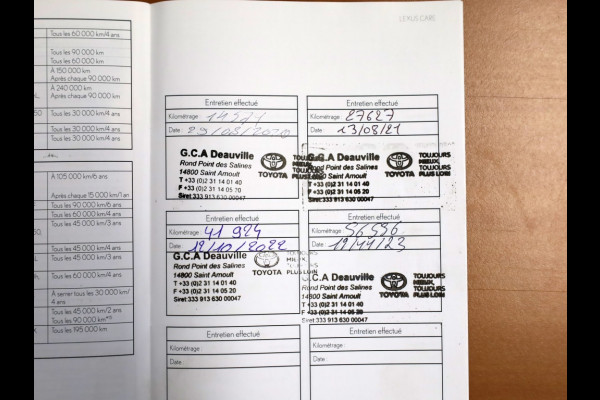 Tous les 60 000 km/4 ans
Tous les 90 000 km
Tous les 60 000 km
À 150 000 km
Après chaque 90 000 km
À 240 000 km
Après chaque 90 000 km
Tous les 30 000 km/4 ans
Tous les 30 000 km/4 ans
Tous les 30 000 km/4 ans
À 105 000 km/6 ans
Après chaque 15 000 km/1 an
Tous les 90 000 km/6 ans
Tous les 60 000 km/4 ans
Tous les 45 000 km/3 ans
Tous les 45 000 km/4 ans
Tous les 45 000 km/3 ans
Tous les 60 000 km/4 ans
À serrer tous les 30 000 km/
4 ans
Tous les 45 000 km/2 ans
Tous les 90 000 km
Tous les 195 000 km
LEXUS CARE
Entretien effectué
Kilométrage :
Date : 29/08/2020
G.C.A Deauville
Rond Point des Salines
14800 Saint Arnoult
T +33 (0)2 31 14 01 40
F +33 (0)2 31 14 05 20
Siret 333 913 630 00047
TOYOTA
TOUJOURS
MIEUX,
TOUJOURS
PLUS LOIN
Entretien effectué
Kilométrage : 27627
Date : 13/08/21
G.C.A Deauville
Rond Point des Salines
14800 Saint Arnoult
T +33 (0)2 31 14 01 40
F +33 (0)2 31 14 05 20
Siret 333 913 630 00047
TOYOTA
TOUJOURS
MIEUX,
TOUJOURS
PLUS LOIN
Entretien effectué
Kilométrage : 41 924
Date : 12/10/2022
G.C.A Deauville
Rond Point des Salines
14800 Saint Arnoult
T +33 (0)2 31 14 01 40
F +33 (0)2 31 14 05 20
Siret 333 913 630 00047
TOYOTA
TOUJOURS
MIEUX,
TOUJOURS
PLUS LOIN
Entretien effectué
Kilométrage : 56596
Date :
G.C.A Deauville
Rond Point des Salines
14800 Saint Arnoult
T +33 (0)2 31 14 01 40
F +33 (0)2 31 14 05 20
Siret 333 913 630 00047
TOYOTA
TOUJOURS
MIEUX,
TOUJOURS
PLUS LOIN
Entretien effectué
Kilométrage :
Date :
Entretien effectué
Kilométrage :
Date :